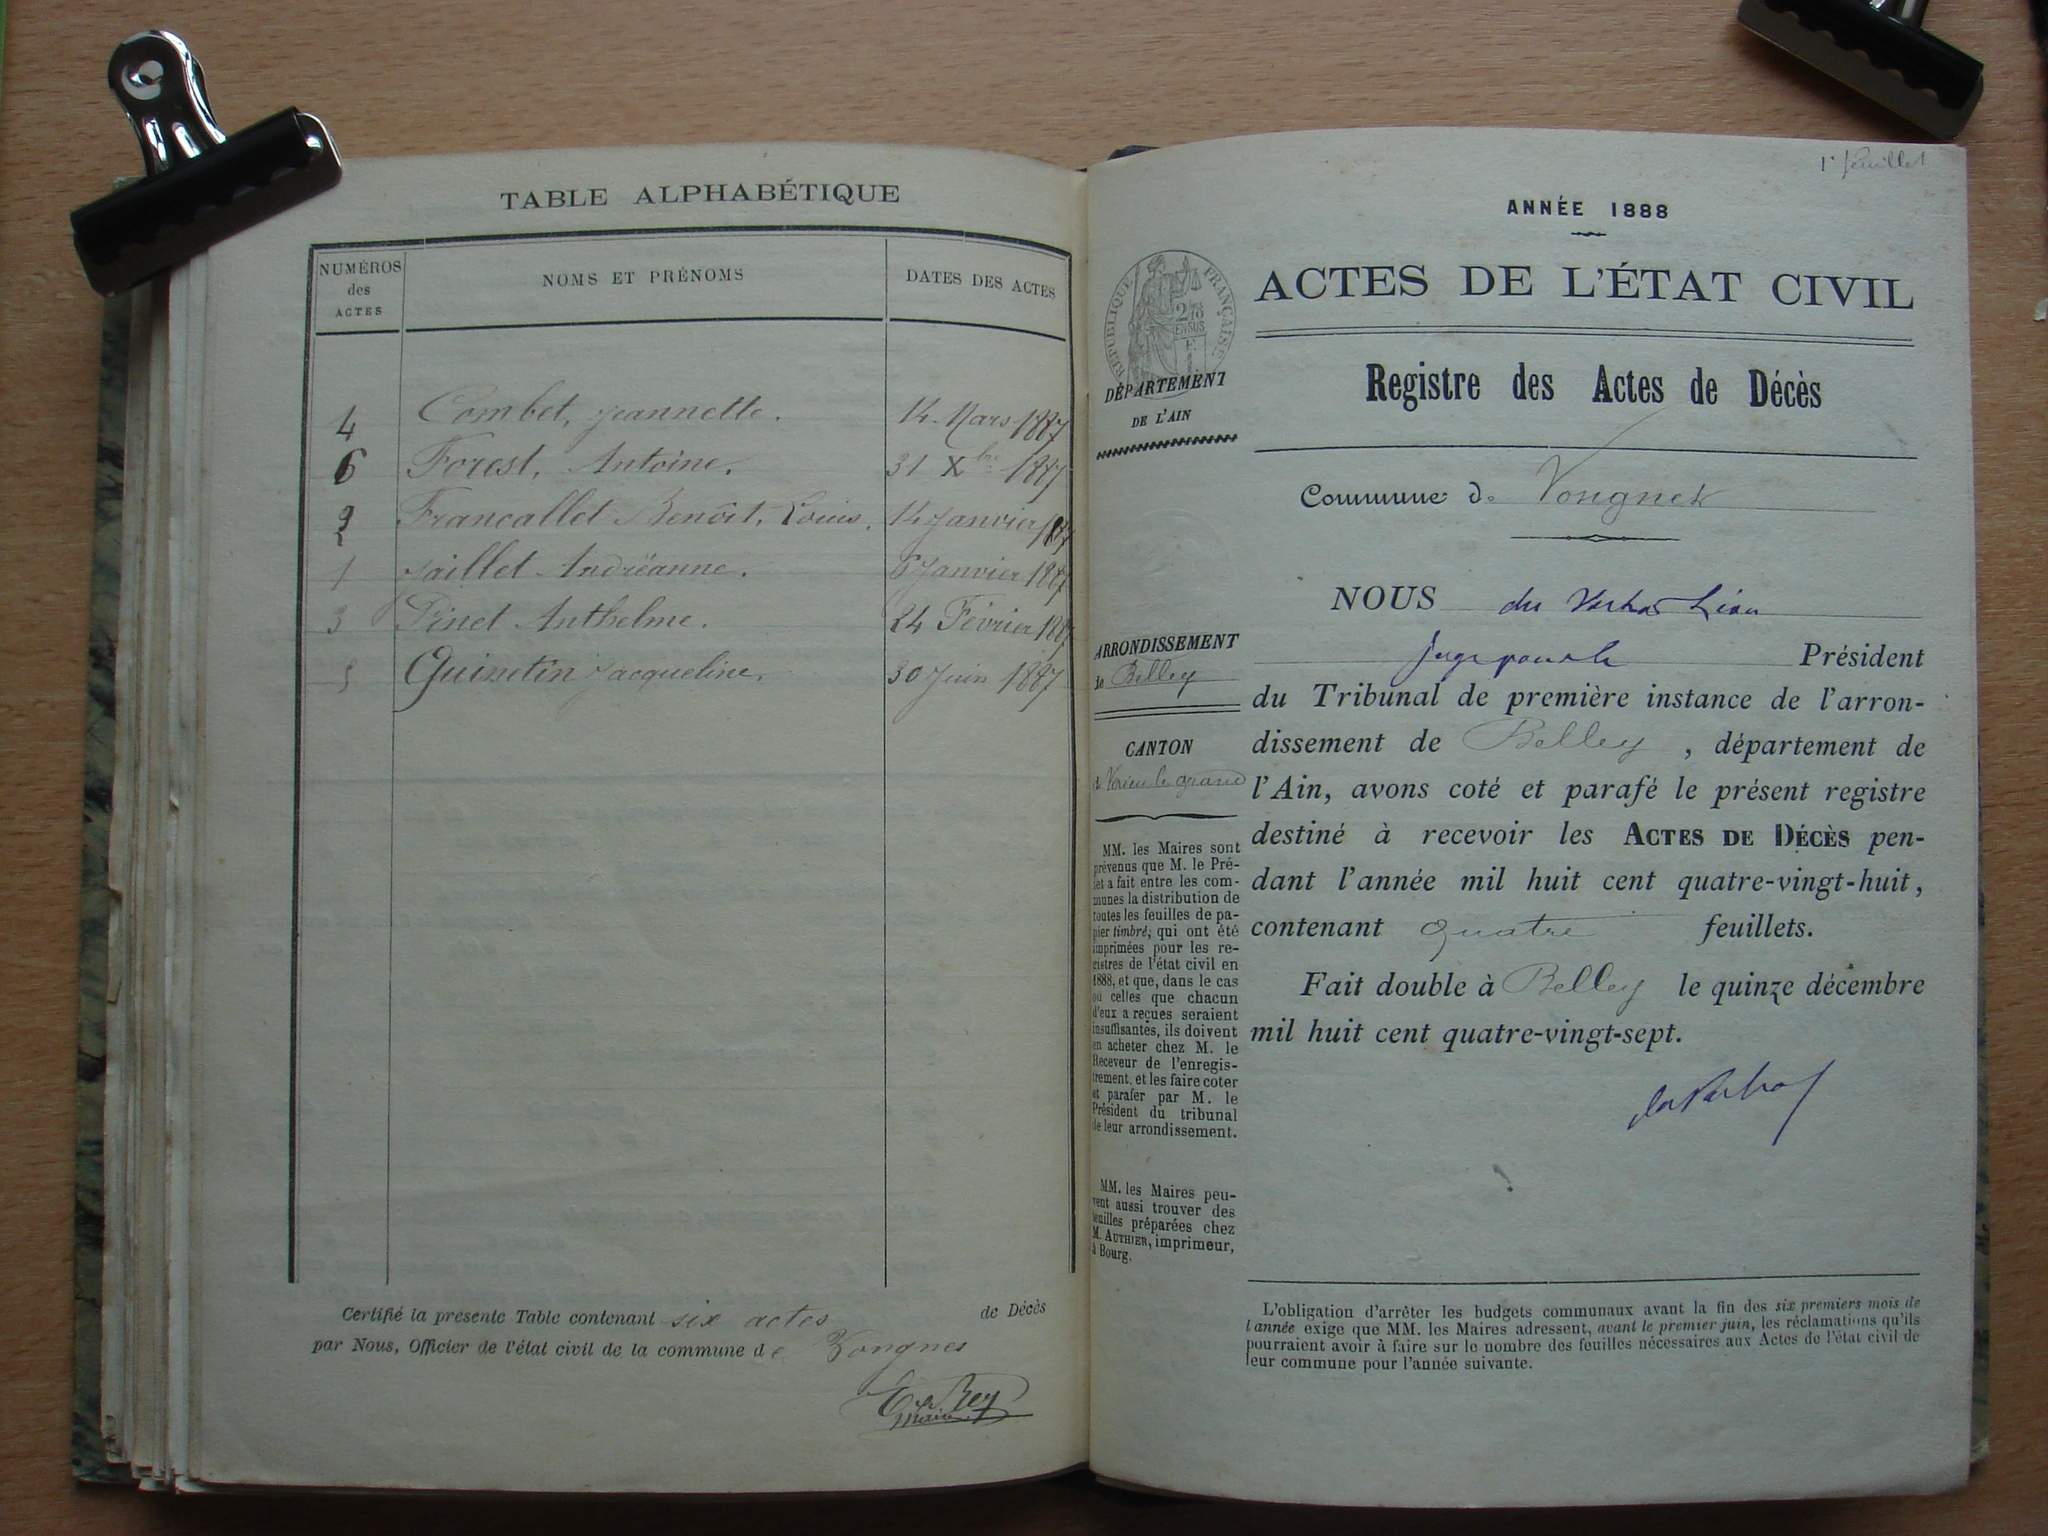 TABLE ALPHABÉTIQUE
NUMÉROS des ACTES
NOMS ET PRÉNOMS
DATES DES ACTES
4 Combet, Jeannette. 14 Mars 1887
6 Forest, Antoine. 31 Xbre 1887
2 Francallet Benoît, Louis. 14 Janvier 1887
1 Jaillet Andréanne. 6 Janvier 1887
3 Pinet Anthelme. 24 Février 1887
5 Quinetin Jacqueline. 30 Juin 1887
Certifié la présente Table contenant six actes de Décès
par Nous, Officier de l'état civil de la commune de Vongnes
Rey
Maire
1er feuillet
ANNÉE 1888
ACTES DE L'ÉTAT CIVIL
RÉPUBLIQUE FRANÇAISE
DÉPARTEMENT
DE L'AIN
Registre des Actes de Décès
Commune de Vongnes
NOUS du Léon
juge pour le Président
du Tribunal de première instance de l'arron-
dissement de Belley, département de
l'Ain, avons coté et parafé le présent registre
destiné à recevoir les ACTES DE DÉCÈS pen-
dant l'année mil huit cent quatre-vingt-huit,
contenant quatre feuillets.
Fait double à Belley le quinze décembre
mil huit cent quatre-vingt-sept.
ARRONDISSEMENT
de Belley
CANTON
de Virieu le grand
MM. les Maires sont
prévenus que M. le Pré-
fet a fait entre les com-
munes la distribution de
toutes les feuilles de pa-
pier timbré, qui ont été
imprimées pour les re-
gistres de l'état civil en
1888, et que, dans le cas
où celles que chacun
d'eux a reçues seraient
insuffisantes, ils doivent
en acheter chez M. le
Receveur de l'enregis-
trement, et les faire coter
et parafer par M. le
Président du tribunal
de leur arrondissement.
MM. les Maires peu-
vent aussi trouver des
feuilles préparées chez
M. AUTHIER, imprimeur,
à Bourg.
L'obligation d'arrêter les budgets communaux avant la fin des six premiers mois de
l'année exige que MM. les Maires adressent, avant le premier juin, les réclamations qu'ils
pourraient avoir à faire sur le nombre des feuilles nécessaires aux Actes de l'état civil de
leur commune pour l'année suivante.